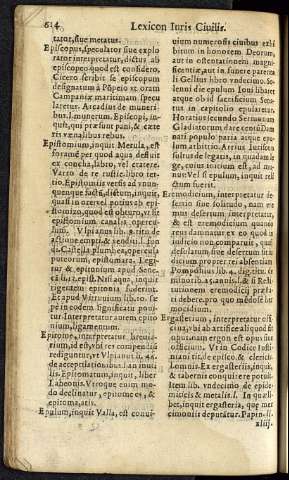 614 Lexicon Iuris Ciuilis.
tator, siue metatus.
Episcopus, speculator siue explo
rator interpretatur, dictus ab
episcopeo quod est considero.
Cicero scribit se episcopum
designatum à Pōpeio vt oram
Campaniæ maritimam specu
laretur. Arcadius de munerī.
bus. l. munerum. Episcopi, in-
quit, qui præsunt pani, & cæte
ris venalibus rebus.
Epistomium, inquit Merula, est
foramē per quod aqua defluit
ex concha, labro, vel cratere.
Varro de re rustic. libro ter-
tio. Epistomiis versis ad vnun-
quenque
quasi in
stomizo, quod est obturo, vt sit
epistomium canalis opercu-
lum. Vlpianus lib. 9. titu. de
actione empti, & vendit. l. fun
di. Castella plumbea, opercula
puteorum, epistomia. Legi-
tur & epitonium apud Sene-
cā li. 13. epist. Nisi aquo, inquit
tigeratim epitonia fuderint.
Et apud Vitruuium lib. 10. sæ
pè in eodem significatu poni-
tur. Interpretatur autem epito
nium, ligamentum.
Epitome, interpretatur breuia-
rium, id est, vbi res compendiò
rediguntur, vt Vlpianus li. 44.
de acceptilationibus. l. an inuti
lis. Epitomatum, inquit, liber
Labeonis. Vtroque enim mo-
do declinatur, epitome es, &
epitoma, atis.
Epulum, inquit Valla, est conui-
uium numerosis ciuibus exhi
bitum in honorem Deorum,
aut in ostentationem magni-
ficentiæ, aut in funere parenta
li. Gellius libro vndecimo. So-
lenni die epulum Ioui libaret
atque ob id sacrificium. Sena-
tus in capitolio epularetur.
Horatius secundo Sermonum
Gladiatorum dare centū Dam
nati populo paria atque epu-
lum arbitrio Arrii. Iuriscon-
sultus de legatis, in quadam le
ge, cuius initium est, ad mu-
nus: Vel si epulum, inquit red
dendum fuerit.
Eremodicium, interpretatur de-
sertio siue solitudo, nam ere
mus desertum interpretatur,
& est eremodicium quando
reus damnatur ex eo quod in
iudicio non comparuit, quasi
desolatum, siue desertum sit iu
dicium propter rei absentiam
Pomponius lib. 4. dig. titu. de
minorib. 25. annis. l. & si Reli-
tientem eremodicij prærti
ti debere. pro quo mēdosè hi
mocidium.
Ergasterium, interpretatur offi
cina, vbi ab artifice aliquod fit
opus, nam ergon est opus siue
officium. Vt in Codice Iusti-
niani titu. de episco. & cleric. l.
omnis. Ex ergasteriis, inquit,
& tabernis conquire re potuit
Item lib. vndecimo de epide-
meticis & metalis. l. In quali-
bet, inquit ergasteria, quæ me
cimonis deputātur. Papin. li.
xliij.